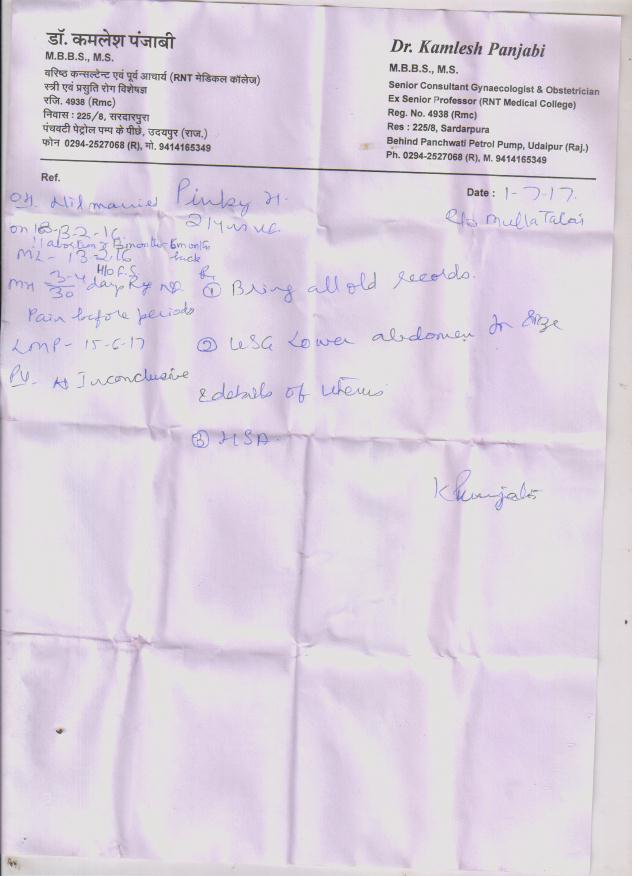 डॉ. कमलेश पंजाबी
M.B.B.S., M.S.
वरिष्ठ कन्सल्टेन्ट एवं पूर्व आचार्य (RNT मेडिकल कॉलेज)
स्त्री एवं प्रसुति रोग विशेषज्ञ
रजि. 4938 (Rmc)
निवास : 225/8, सरदारपुरा
पंचवटी पेट्रोल पम्प के पीछे, उदयपुर (राज.)
फोन 0294-2527068 (R), मो. 9414165349
Dr. Kamlesh Panjabi
M.B.B.S., M.S.
Senior Consultant Gynaecologist & Obstetrician
Ex Senior Professor (RNT Medical College)
Reg. No. 4938 (Rmc)
Res : 225/8, Sardarpura
Behind Panchwati Petrol Pump, Udaipur (Raj.)
Ph. 0294-2527068 (R), M. 9414165349
Ref.
Date : 1-7-17
Pinky
R/o Mulla Talai
abortion
back
ML - 13-2-16
H/O
MH 3-4/30 days Reg
Pain before periods
LMP - 15-6-17
PV - Inconclusive
① Bring all old records.
② USG Lower abdomen for size
& details of uterus
③ HSA